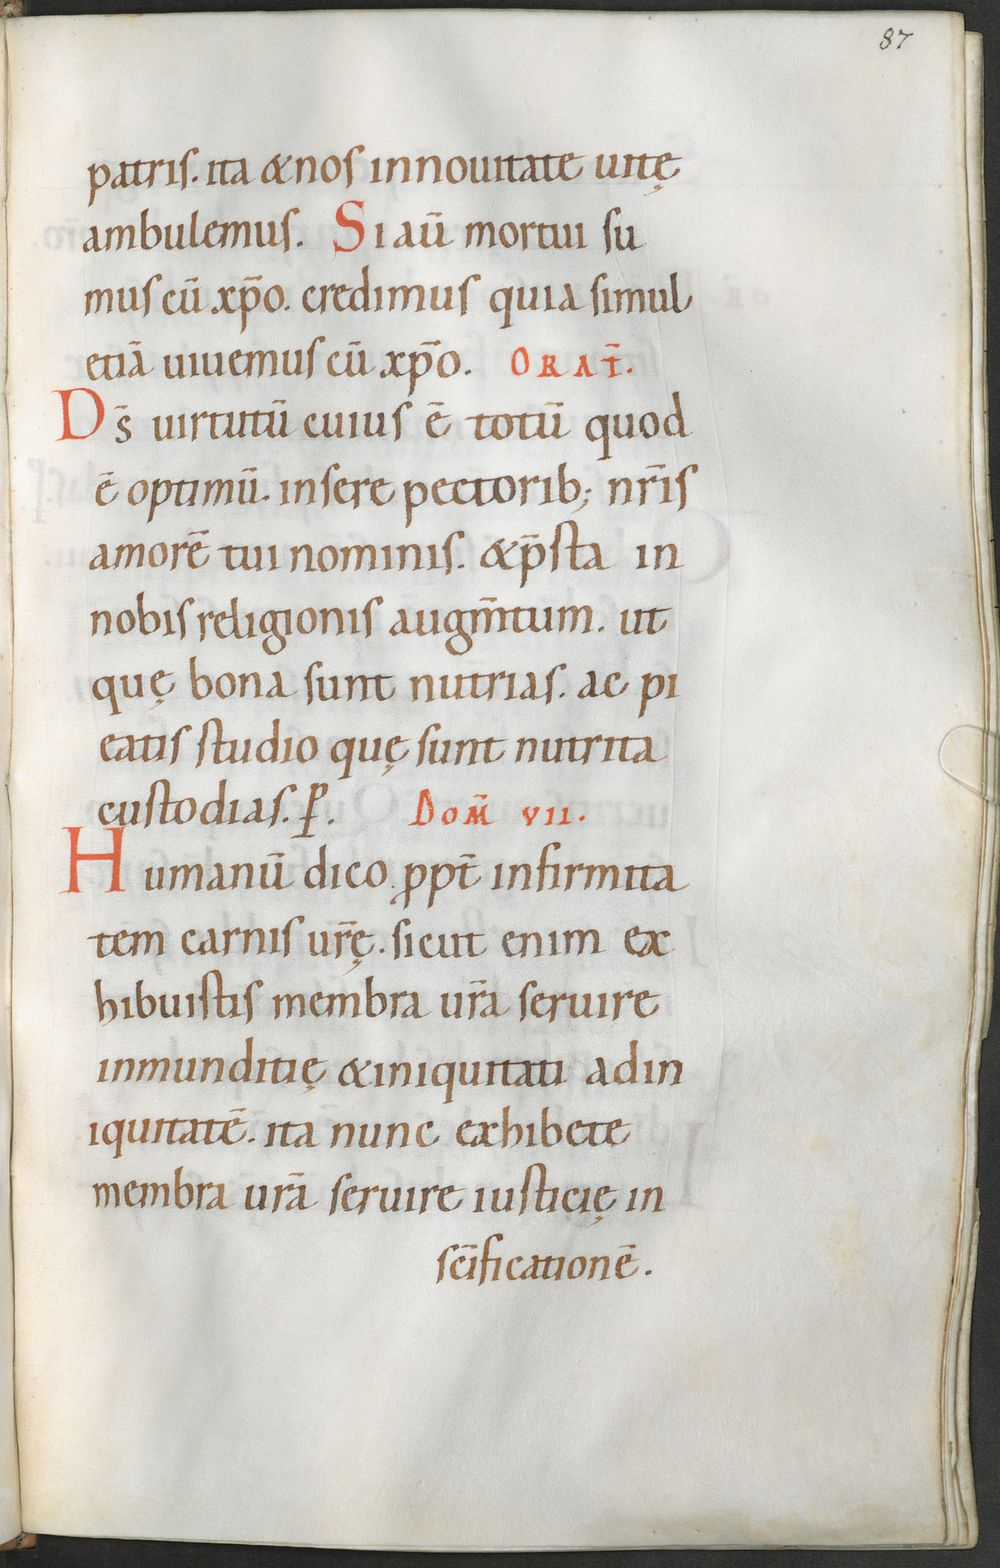 87
patris. ita & nos in nouitate uitę
ambulemus. Si aū mortui su
mus cū xp̄o. credimus quia simul
etiā uiuemus cū xp̄o. ORAT̄.
Ds̄ uirtutū cuius ē totū quod
ē optimū. insere pectorib; nr̄is
amorē tui nominis. & p̄sta in
nobis religionis augm̄tum. ut
quę bona sunt nutrias. ac pi
etatis studio quę sunt nutrita
custodias. P̱. DOM̄ VII.
Humanū dico ꝓpt̄ infirmita
tem carnis ur̄ę. sicut enim ex
hibuistis membra ur̄a seruire
inmunditię & iniquitati ad in
iquitatē. ita nunc exhibete
membra urā seruire iusticię in
sc̄ificationē.